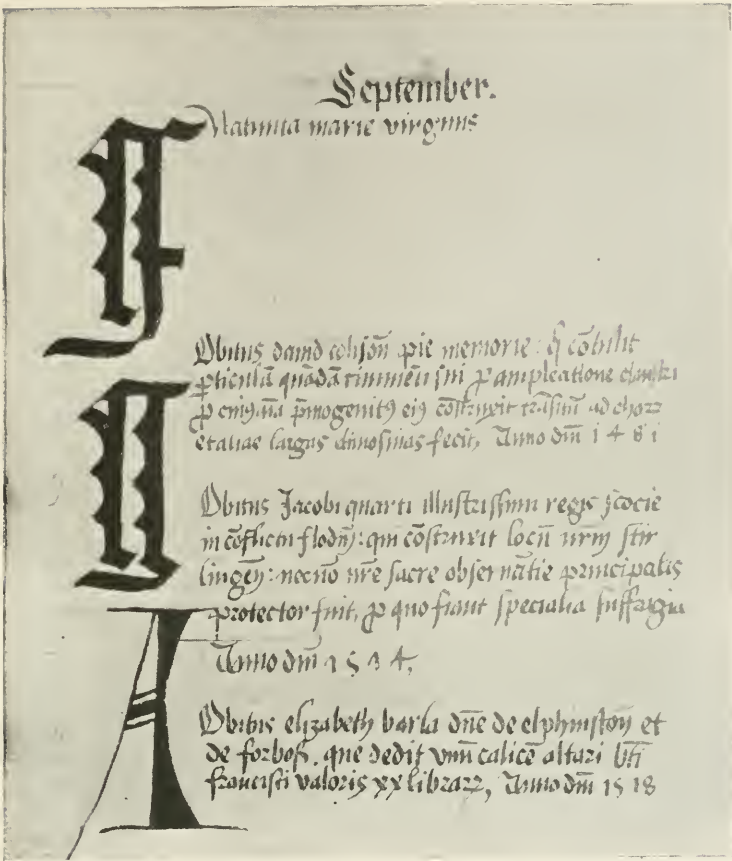 September.
F Natiuita marie virginis
Obitus dauid colison pie memorie: q̃ cõtulit
p̱ticulã quãdã sui p̱ ampleatione
p̱ p̃mogenitꝯ eiꝯ cõstruxit ad chorꝝ
et alias largas elimosinas fecit, Anno dñi 1481
G
Obitus Jacobi quarti illustrissimi regis scocie
in cõflictu flodin̄: qui cõstruxit locũ nr̃m stir
lingen̄: necnõ nr̃e sacre obseruãtie principalis
protector fuit, p̱ quo fiant specialia suffragia
Anno dñi 1 5 4,
A
Obitus elizabeth barla dñe de elphinston̄ et
de forbos. que dedit vnũ calicẽ altari bti
francisci valoris xx librarꝝ, Anno dñi 1518